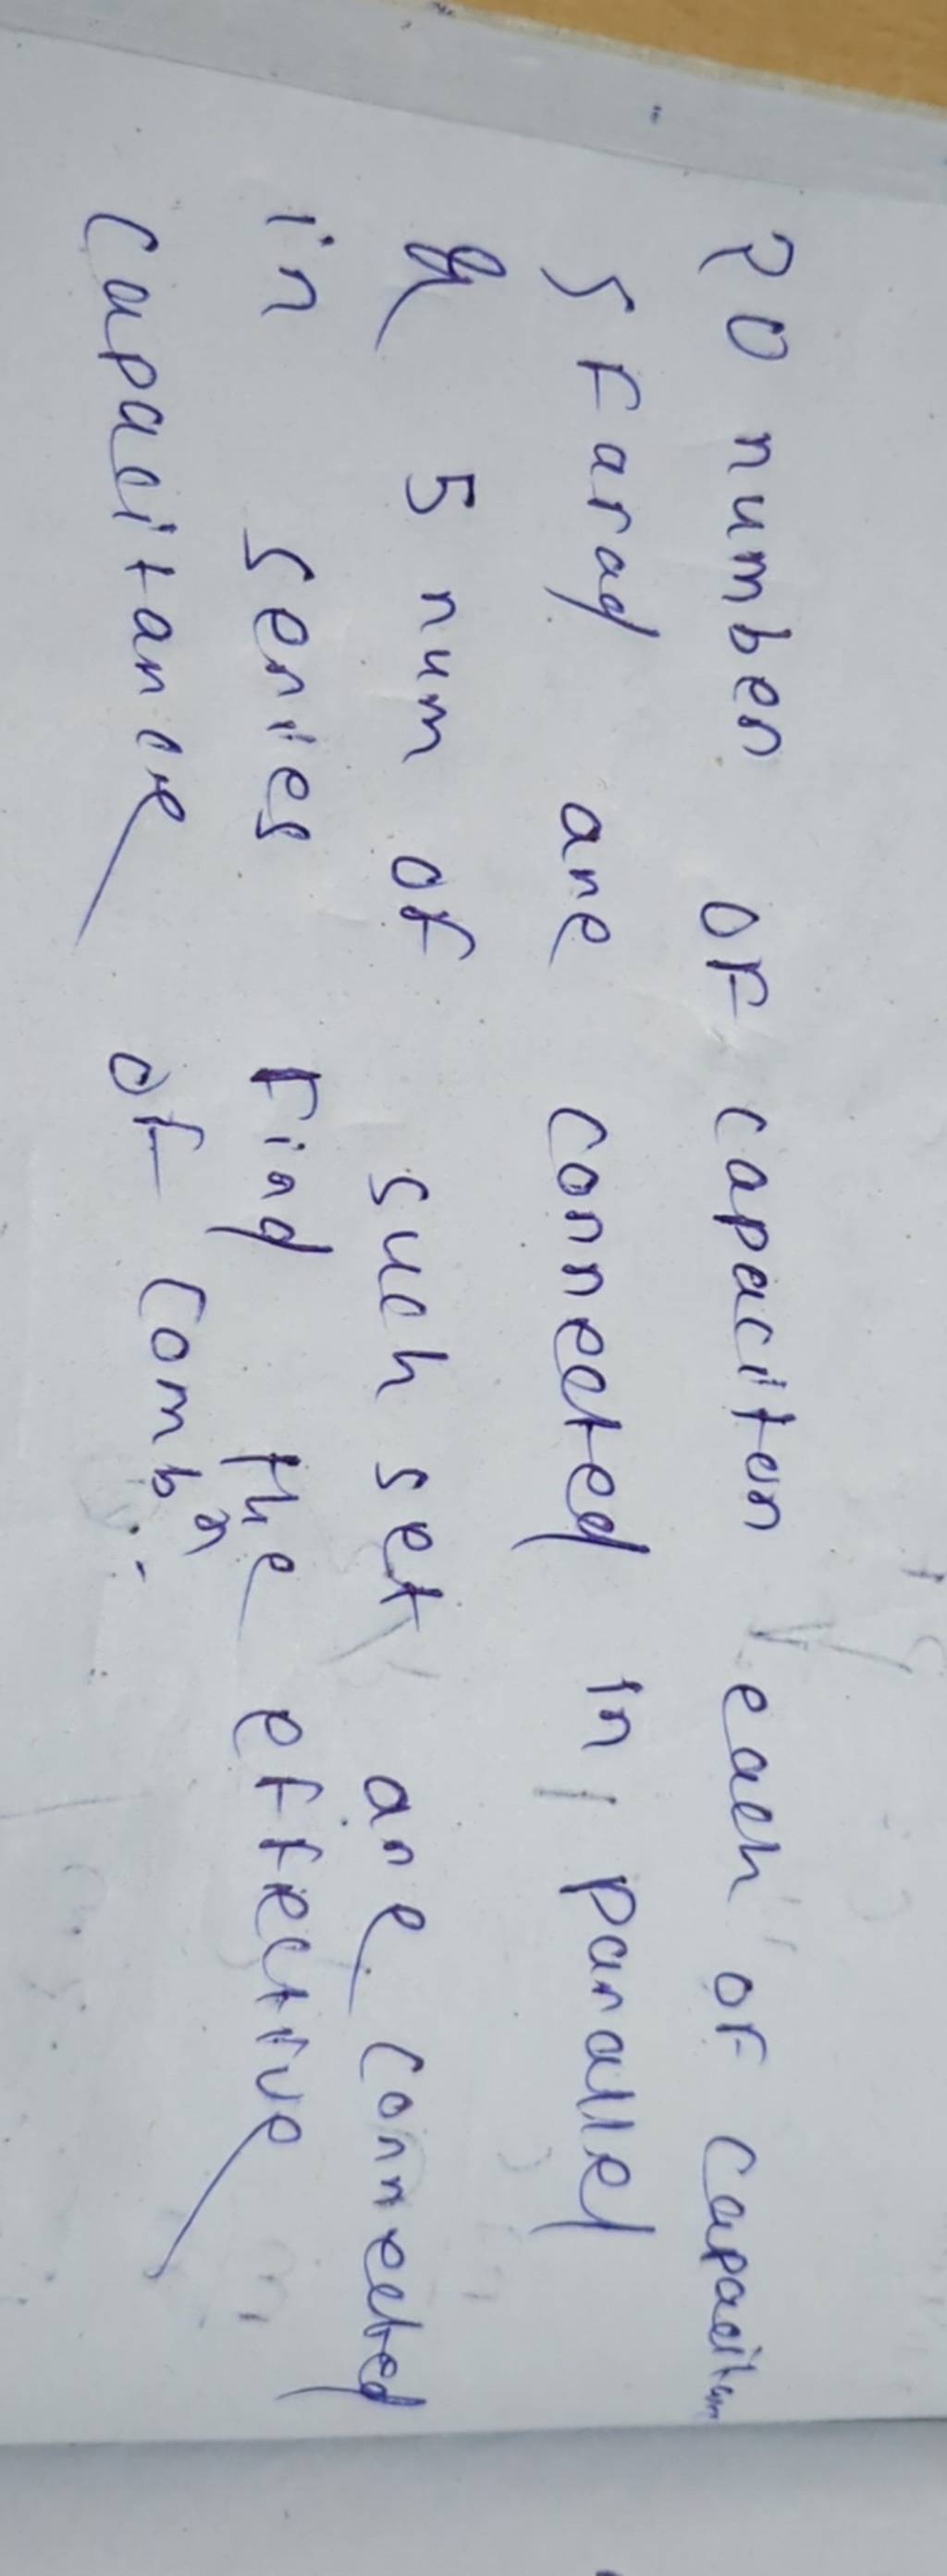 20 number of capacitor each of capacitan
5 Farad are connected in parallel
& 5 num of such set are connected
in series Find the effective
capacitance of combn.